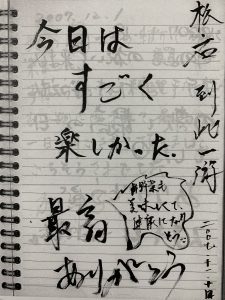 今日は
すごく
楽しかった.
最高
ありがとう
野菜も
美味しくて、
健康になり
そう。
到此一游
二〇〇七.十二.一
2007.12.1